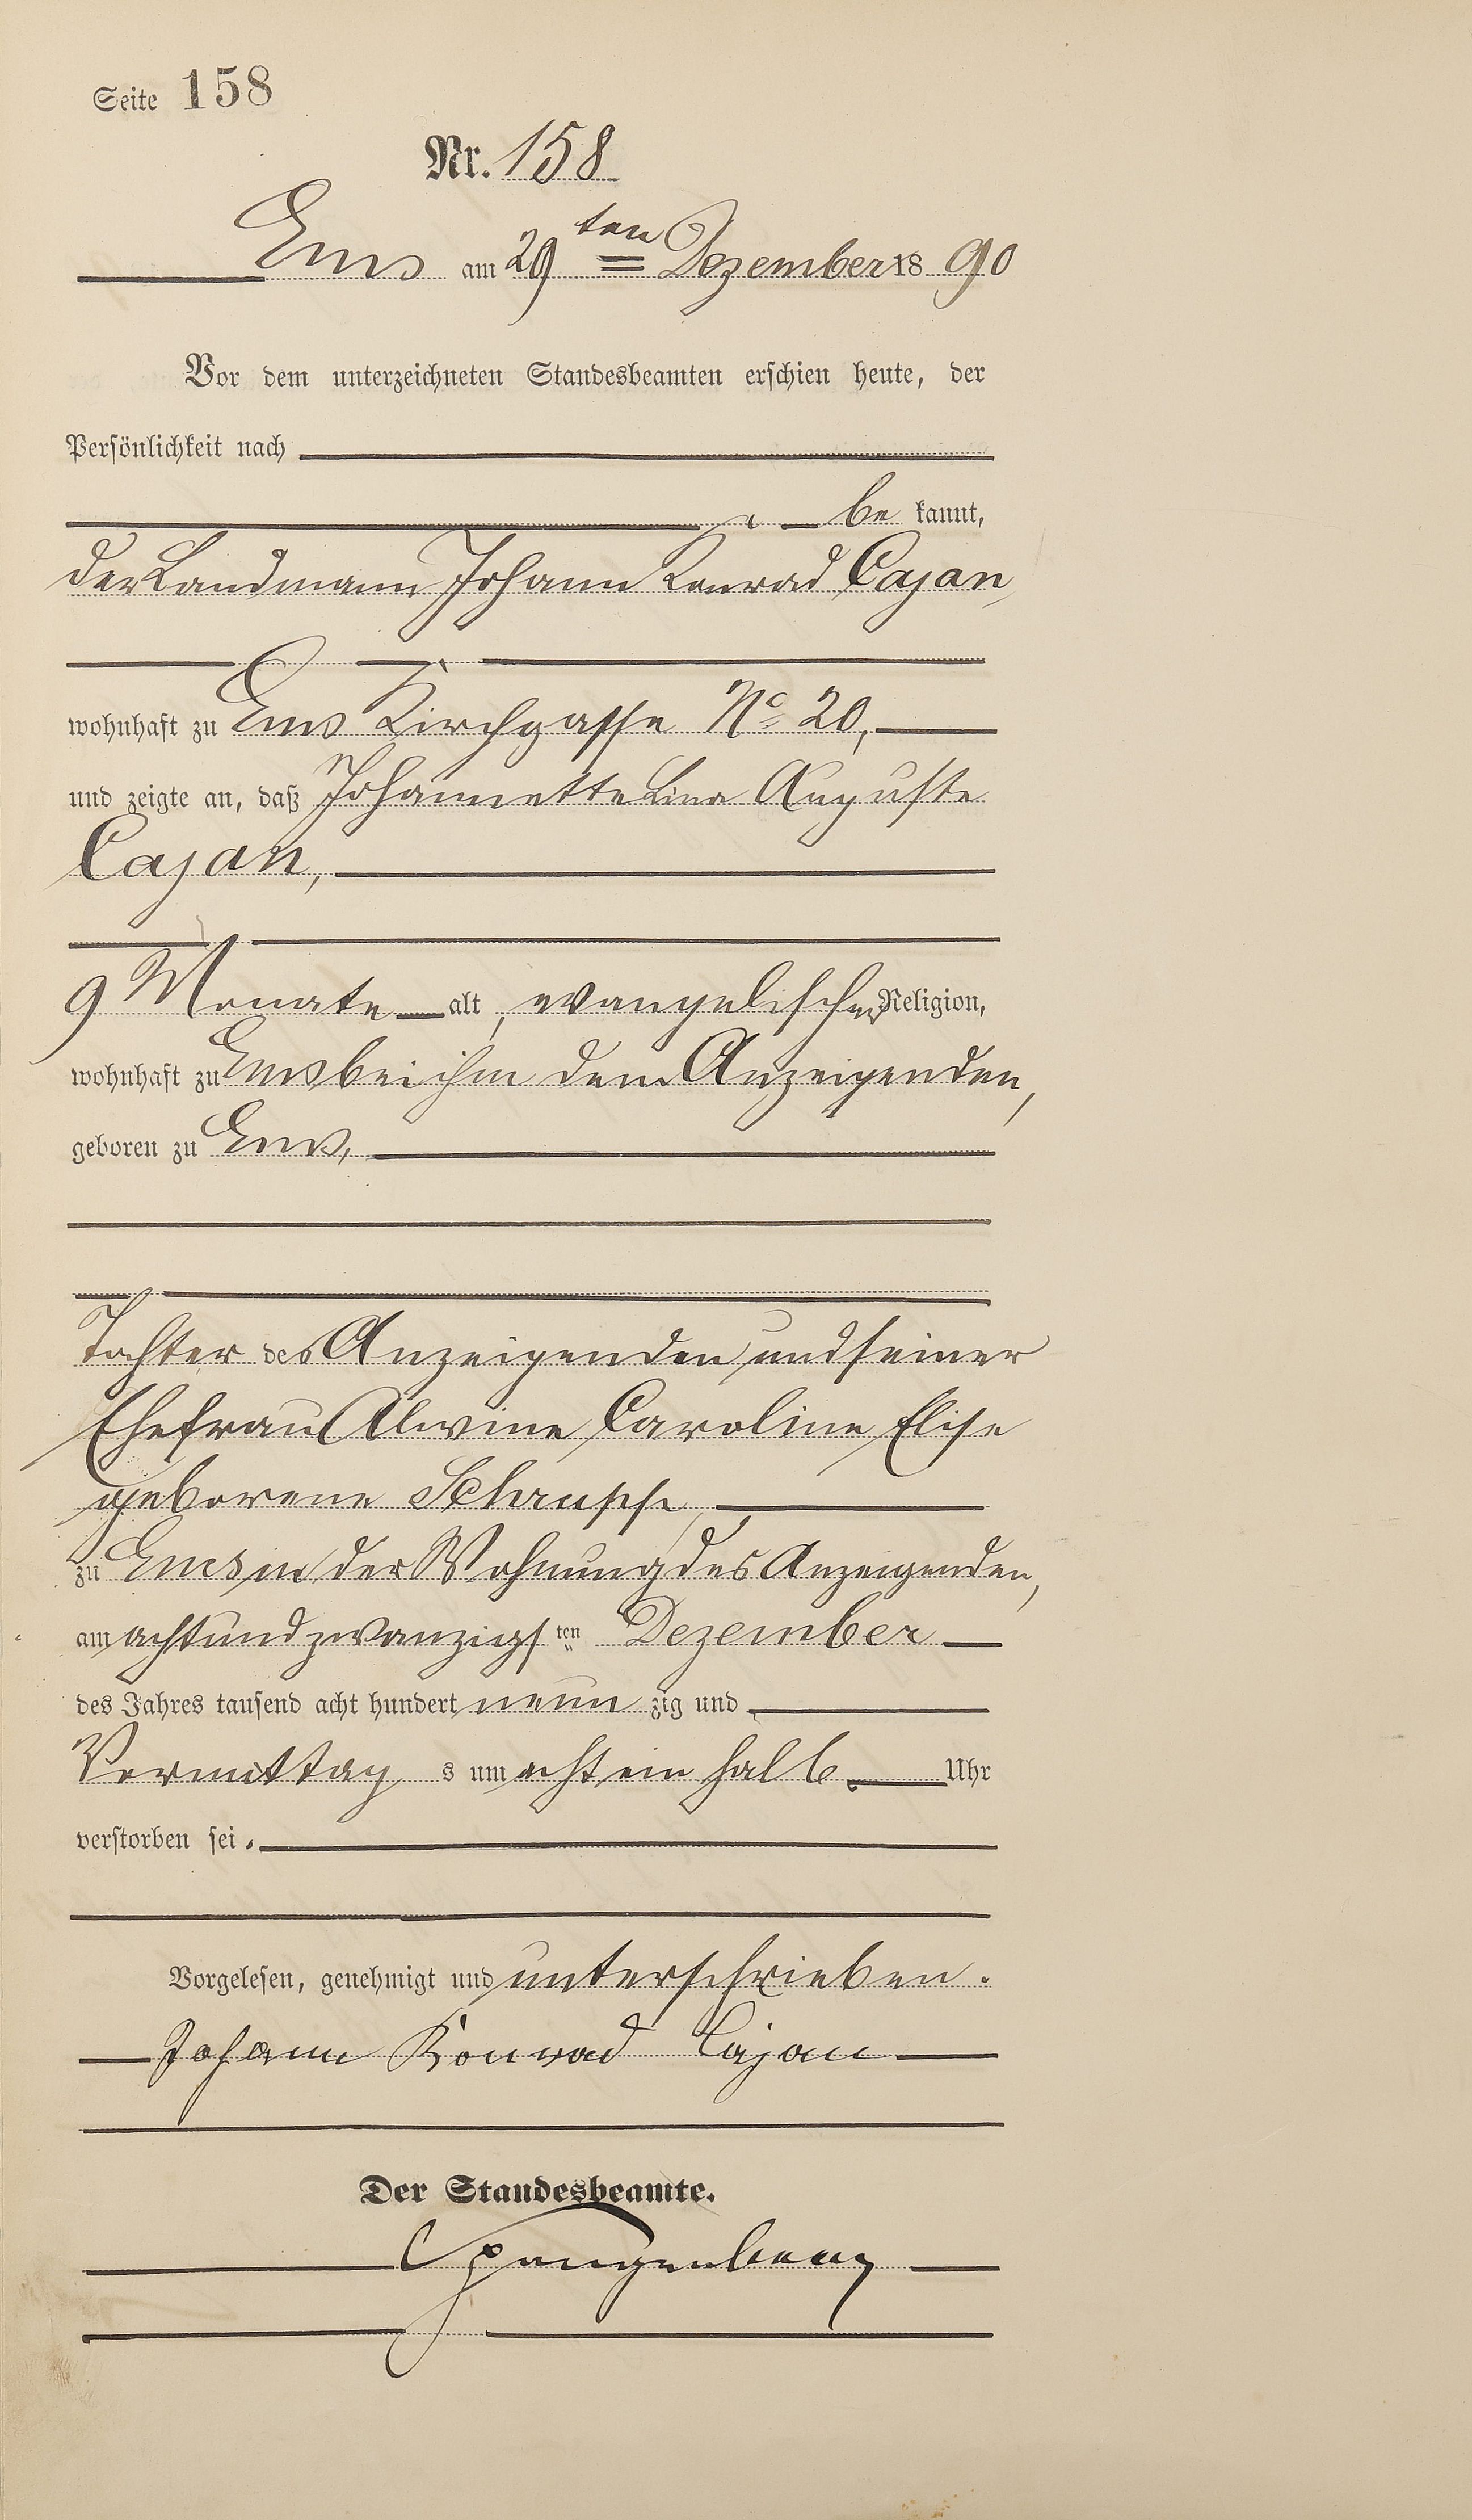 Seite 158
Nr. 158
Ems am 29ten Dezember 1890
Vor dem unterzeichneten Standesbeamten erschien heute, der
Persönlichkeit nach
be kannt,
der Landmann Johann Konrad Cajan,
wohnhaft zu Ems Kirchgasse No 20,
und zeigte an, daß Johannette Lina Auguste
Cajan,
9 Monate alt, evangelischer Religion,
wohnhaft zu Ems bei ihm dem Anzeigenden,
geboren zu Ems,
Tochter des Anzeigenden und seiner
Ehefrau Alwine Caroline Elise
geborene Schrupp,
zu Ems in der Wohnung des Anzeigenden,
am achtundzwanzigsten Dezember
des Jahres tausend acht hundert neun zig und
Vormittag s um acht ein halb Uhr
verstorben sei.
Vorgelesen, genehmigt und unterschrieben.
Johann Konrad Cajan
Der Standesbeamte.
Spangenberg